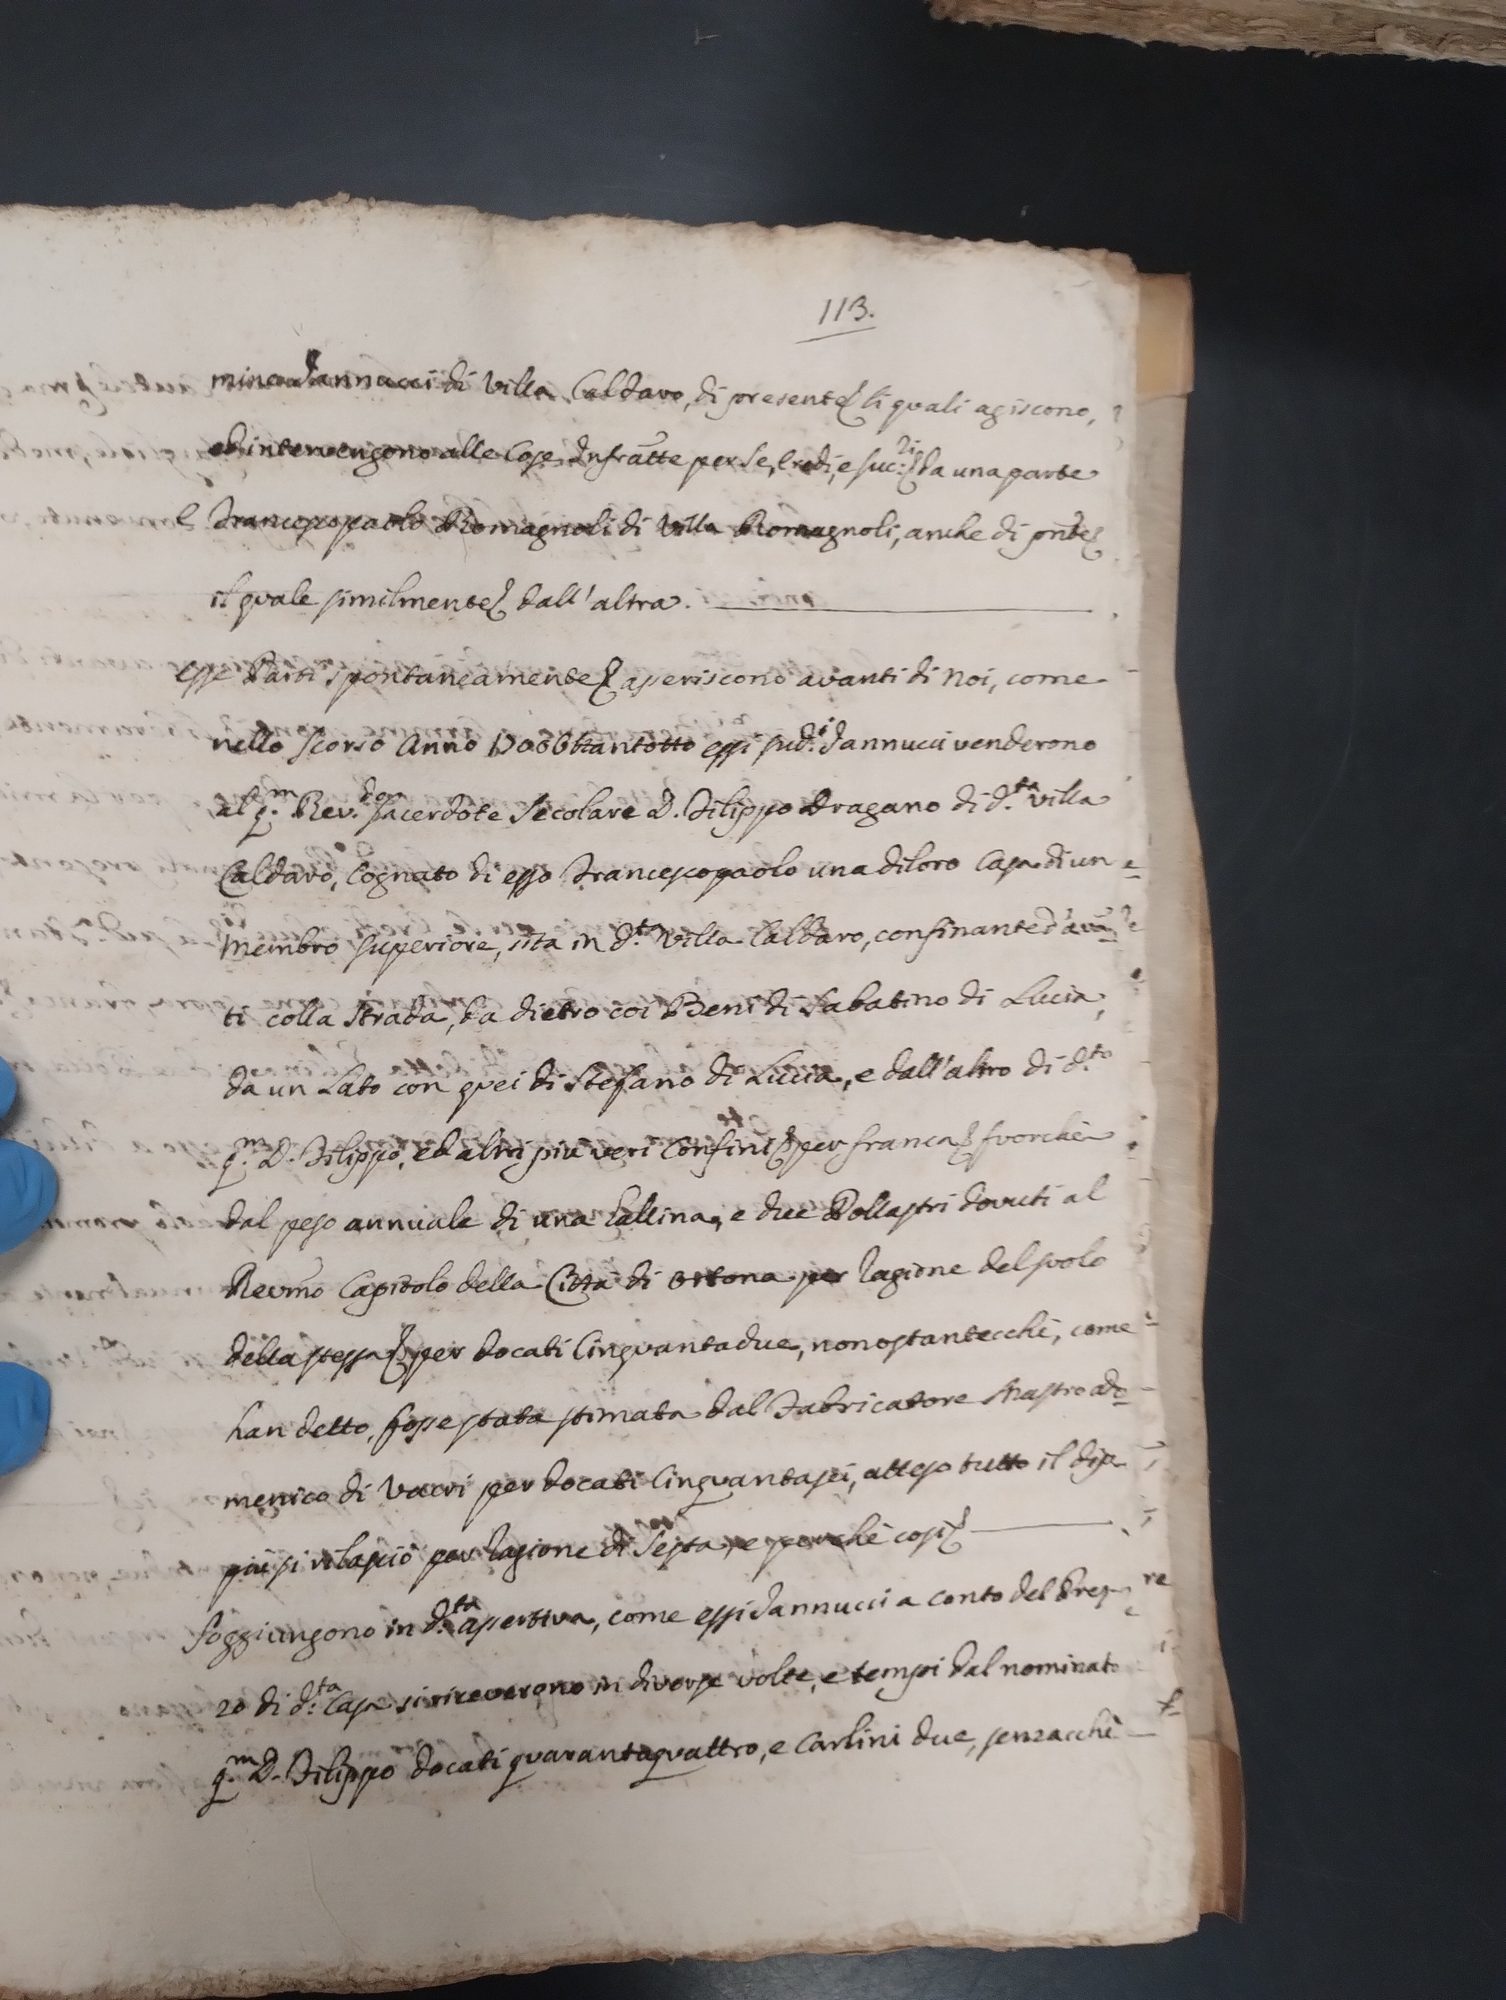 113.
mina Iannucci di Villa Caldaro, di presente li quali agiscono,
ed intervengono alle Cose Infratte per se, Eredi, e succ.ri da una parte
E Francescopaolo Romagnoli di Villa Romagnoli, anche di pnte
il quale similmente dall'altra.
Esse Parti spontaneamente aseriscono avanti di Noi, come
nello scorso Anno essi sud.i Iannucci venderono
al q.m Rev.do Sacerdote Secolare D. Filippo Dragano di d.ta Villa
Caldaro, Cognato di esso Francescopaolo una di loro Casa di un
membro superiore, sita in d.ta Villa Caldaro, confinante d'avan
ti colla Strada, da dietro coi Beni di Sabatino di Lucia,
da un Lato con quei di Stefano di Lucia, e dall'altro di d.to
q.m D. Filippo, ed altri più veri Confini per franca fuorchè
dal peso annuale di una Gallina, e due Pollastri dovuti al
Revmo Capitolo della Città di Ortona per ragione del suolo
della stessa per docati Cinquantadue, nonostantecchè, come
han detto, fosse stata stimata dal Fabricatore Mastro Do
menico di Vacri per docati Cinquantasei, atteso tutto il dip
più si rilasciò per ragione di Sesta, e perchè così
Soggiungono in d.ta asertiva, come essi Iannucci a conto del Prez
zo di d.ta Casa si riceverono in diverse volte, e tempi dal nominato
q.m D. Filippo docati quarantaquattro, e Carlini due, senzacchè